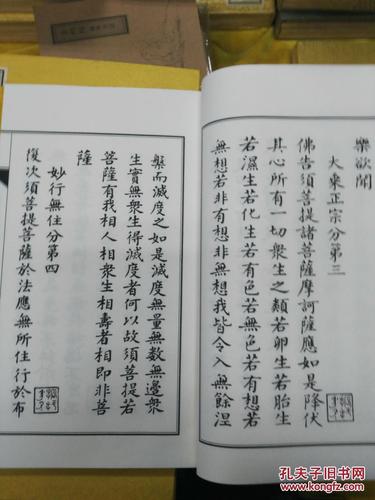 樂欲聞
大乗正宗分第三
佛告須菩提諸菩薩摩訶薩應如是降伏
其心所有一切衆生之類若卵生若胎生
若濕生若化生若有色若無色若有想若
無想若非有想非無想我皆令入無餘涅
槃而滅度之如是滅度無量無數無邊衆
生實無衆生得滅度者何以故須菩提若
菩薩有我相人相衆生相壽者相即非菩
薩
妙行無住分第四
復次須菩提菩薩於法應無所住行於布
孔夫子旧书网
www.kongfz.com